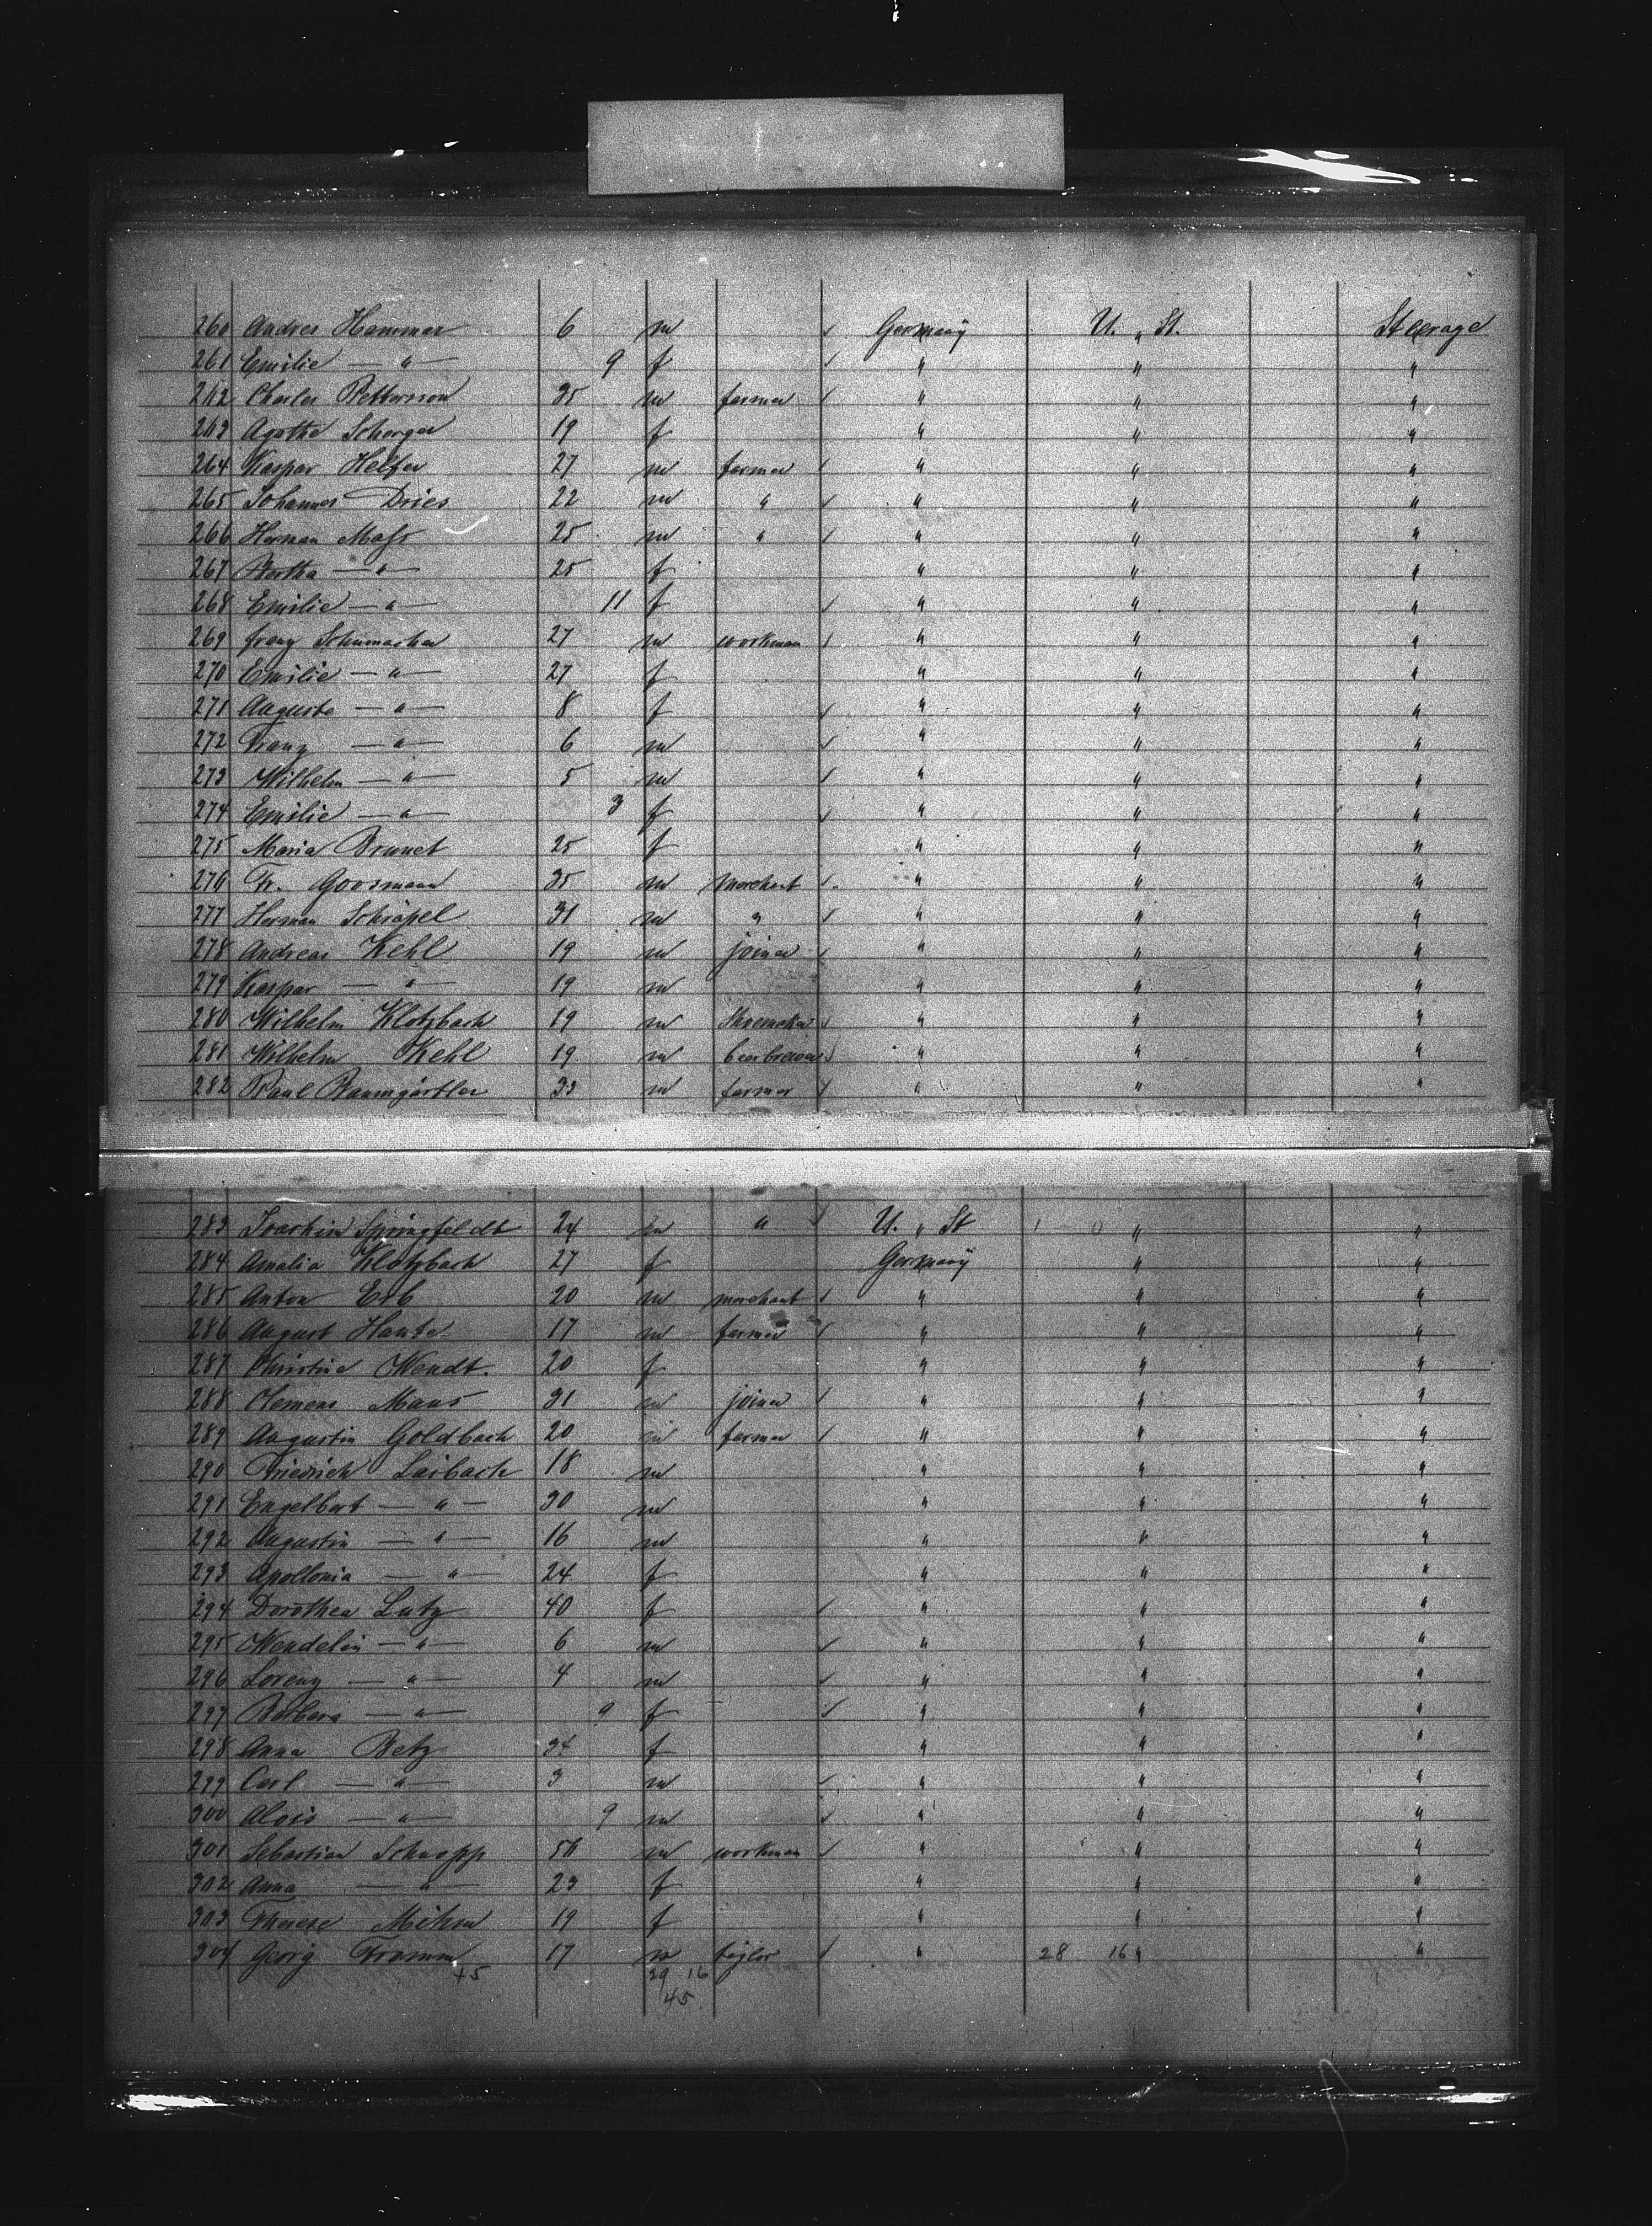 260 Andres Hammer 6 m Germany U. " St. Steerage
261 Emilie — " — 9 f " " "
262 Charles Pettersson 35 m farmer " " "
263 Agathe Scherger 19 f " " "
264 Kaspar Helfer 27 m farmer " " "
265 Johannes Dries 22 m " " " "
266 Herman Mass 25 m " " " "
267 Bertha — " — 25 f " " "
268 Emilie — " — 11 f " " "
269 franz Schumacher 27 m workman " " "
270 Emilie — " — 27 f " " "
271 Auguste — " — 8 f " " "
272 Franz — " — 6 m " " "
273 Wilhelm — " — 5 m " " "
274 Emilie — " — 3 f " " "
275 Maria Brunet 25 f " " "
276 Fr. Goosmann 35 m merchant " " "
277 Herman Schräpel 31 m " " " "
278 Andreas Kehl 19 m joiner " " "
279 Kaspar — " — 19 m " " "
280 Wilhelm Klotzbach 19 m Shoemaker " " "
281 Wilhelm Kehl 19 m beerbrewer " " "
282 Paul Baumgärtler 33 m farmer " " "
283 Joachim Springfeldt 24 m " U. " St 1 - 0 " "
284 Amalia Klotzbach 27 f Germany " "
285 Anton Erb 20 m merchant " " "
286 August 17 m farmer " " "
287 Christine Wendt. 20 f " " "
288 Clemens Maus 31 m joiner " " "
289 Augustin Goldbach 20 m farmer " " "
290 Friedrich Laibach 18 m " " "
291 Engelbert — " — 30 m " " "
292 Augustin — " — 16 m " " "
293 Apollonia — " — 24 f " " "
294 Dorothea Lutz 40 f " " "
295 Wendelin — " — 6 m " " "
296 Lorenz — " — 4 m " " "
297 Barbara — " — 9 f " " "
298 Anna Betz 34 f " " "
299 Carl — " — 3 m " " "
300 Alois — " — 9 m " " "
301 Sebastian Schnopp 56 m workman " " "
302 Anna — " — 23 f " " "
303 Therese Mihm 19 f " " "
304 Georg Framm 17 m tejlor " 28 16 " "
+5 29 16
45